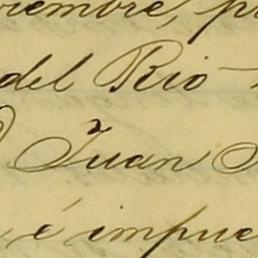 viembre, p
del Rio
Juan
é impue